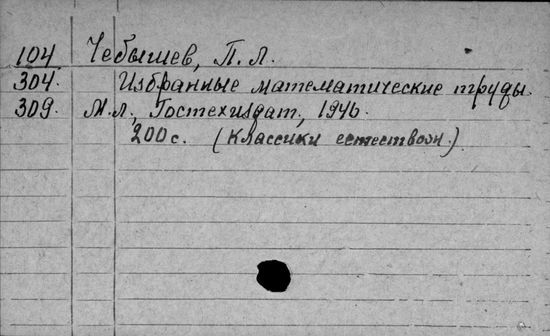 104 Чебышев, П. Л.
304. Избранные математические труды.
309. М.Л., Гостехиздат, 1946.
200 с. (Классики естествозн.)